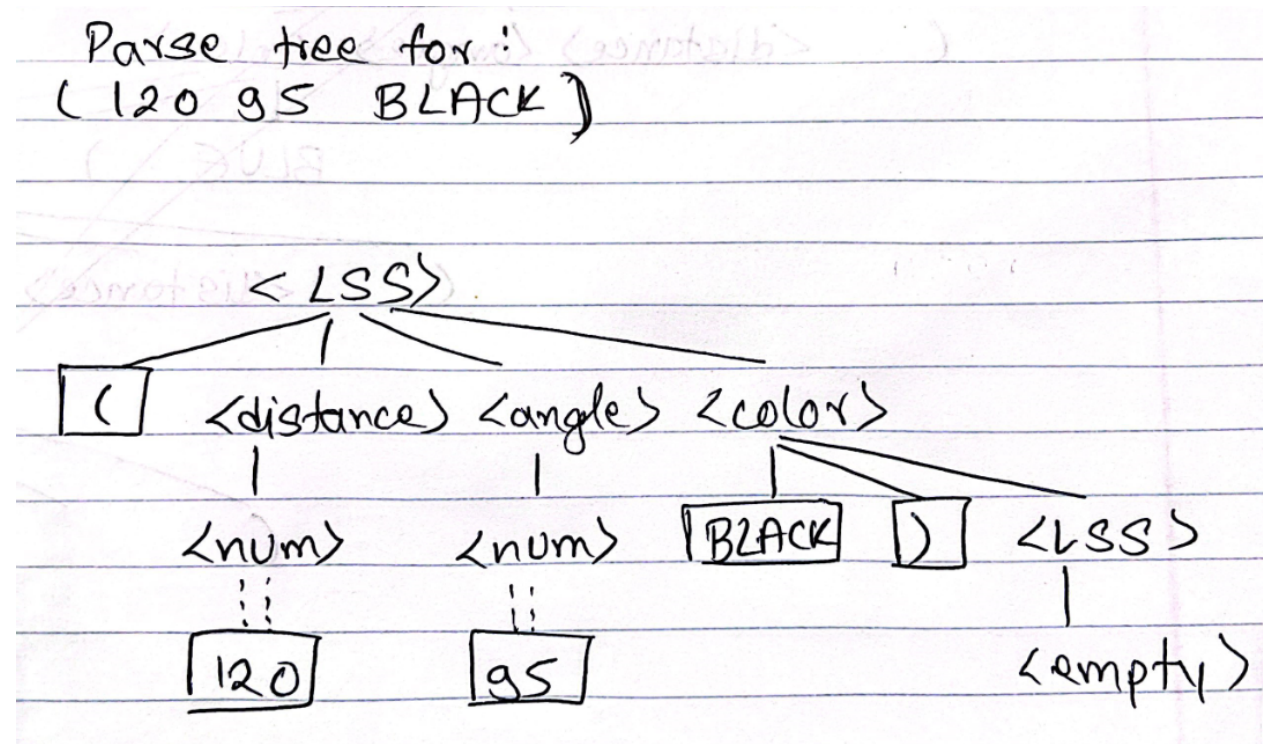 Parse tree for:
( 120 95 BLACK )
<LSS>
( <distance> <angle> <color>
<num> <num> BLACK ) <LSS>
120 95 <empty>